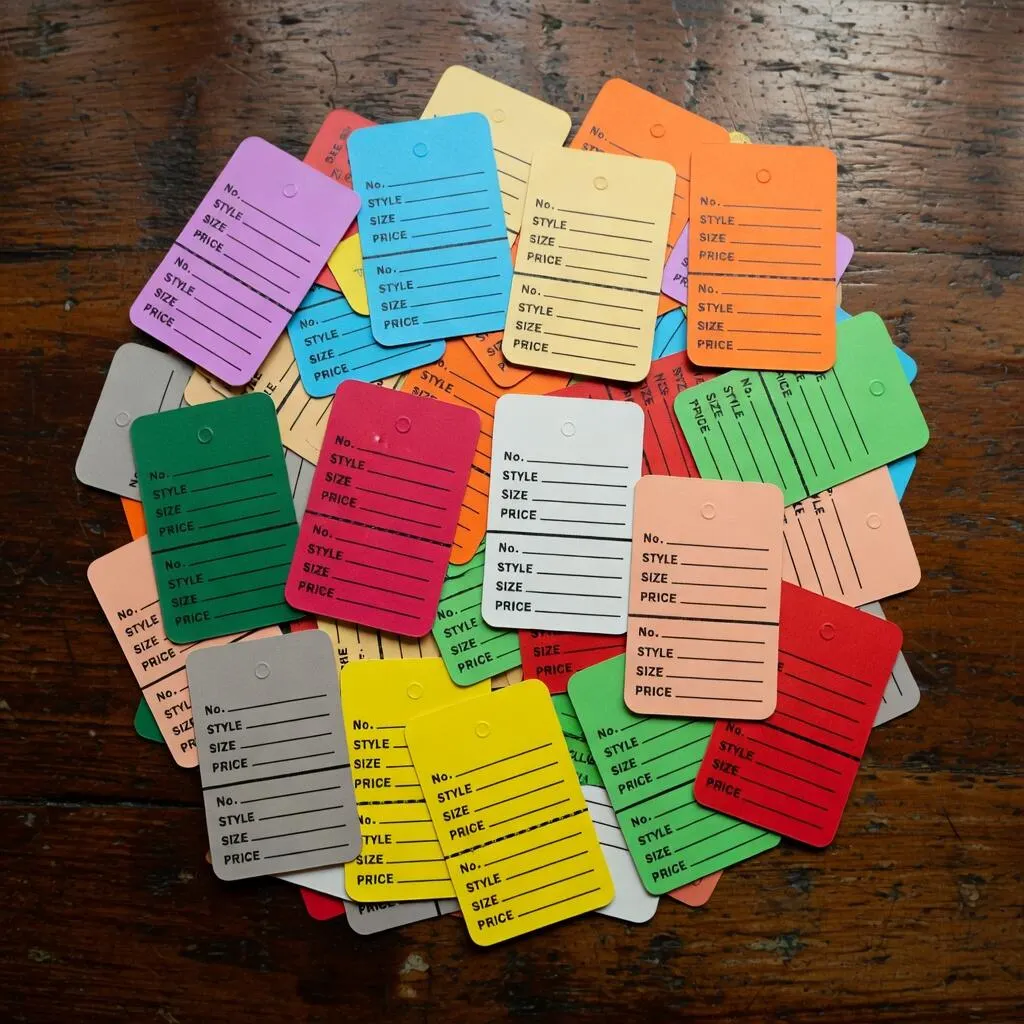 No.
STYLE
SIZE
PRICE
No.
STYLE
SIZE
PRICE
No.
STYLE
SIZE
PRICE
No.
STYLE
SIZE
PRICE
No.
STYLE
SIZE
PRICE
No.
STYLE
SIZE
PRICE
No.
No.
STYLE
SIZE
PRICE
No.
STYLE
SIZE
PRICE
No.
STYLE
SIZE
PRICE
No.
STYLE
SIZE
PRICE
No.
STYLE
SIZE
PRICE
No.
STYLE
SIZE
PRICE
No.
STYLE
SIZE
PRICE
No.
STYLE
SIZE
PRICE
No.
STYLE
SIZE
PRICE
No.
STYLE
SIZE
PRICE
No.
STYLE
SIZE
PRICE
No.
STYLE
SIZE
PRICE
No.
STYLE
SIZE
PRICE
No.
STYLE
SIZE
PRICE
STYLE
SIZE
PRICE
No.
STYLE
SIZE
PRICE
No.
STYLE
SIZE
PRICE
No.
STYLE
SIZE
PRICE
No.
STYLE
SIZE
PRICE
No.
STYLE
SIZE
PRICE
No.
STYLE
SIZE
PRICE
No.
STYLE
SIZE
PRICE
No.
STYLE
SIZE
PRICE
No.
STYLE
SIZE
PRICE
No.
STYLE
SIZE
PRICE